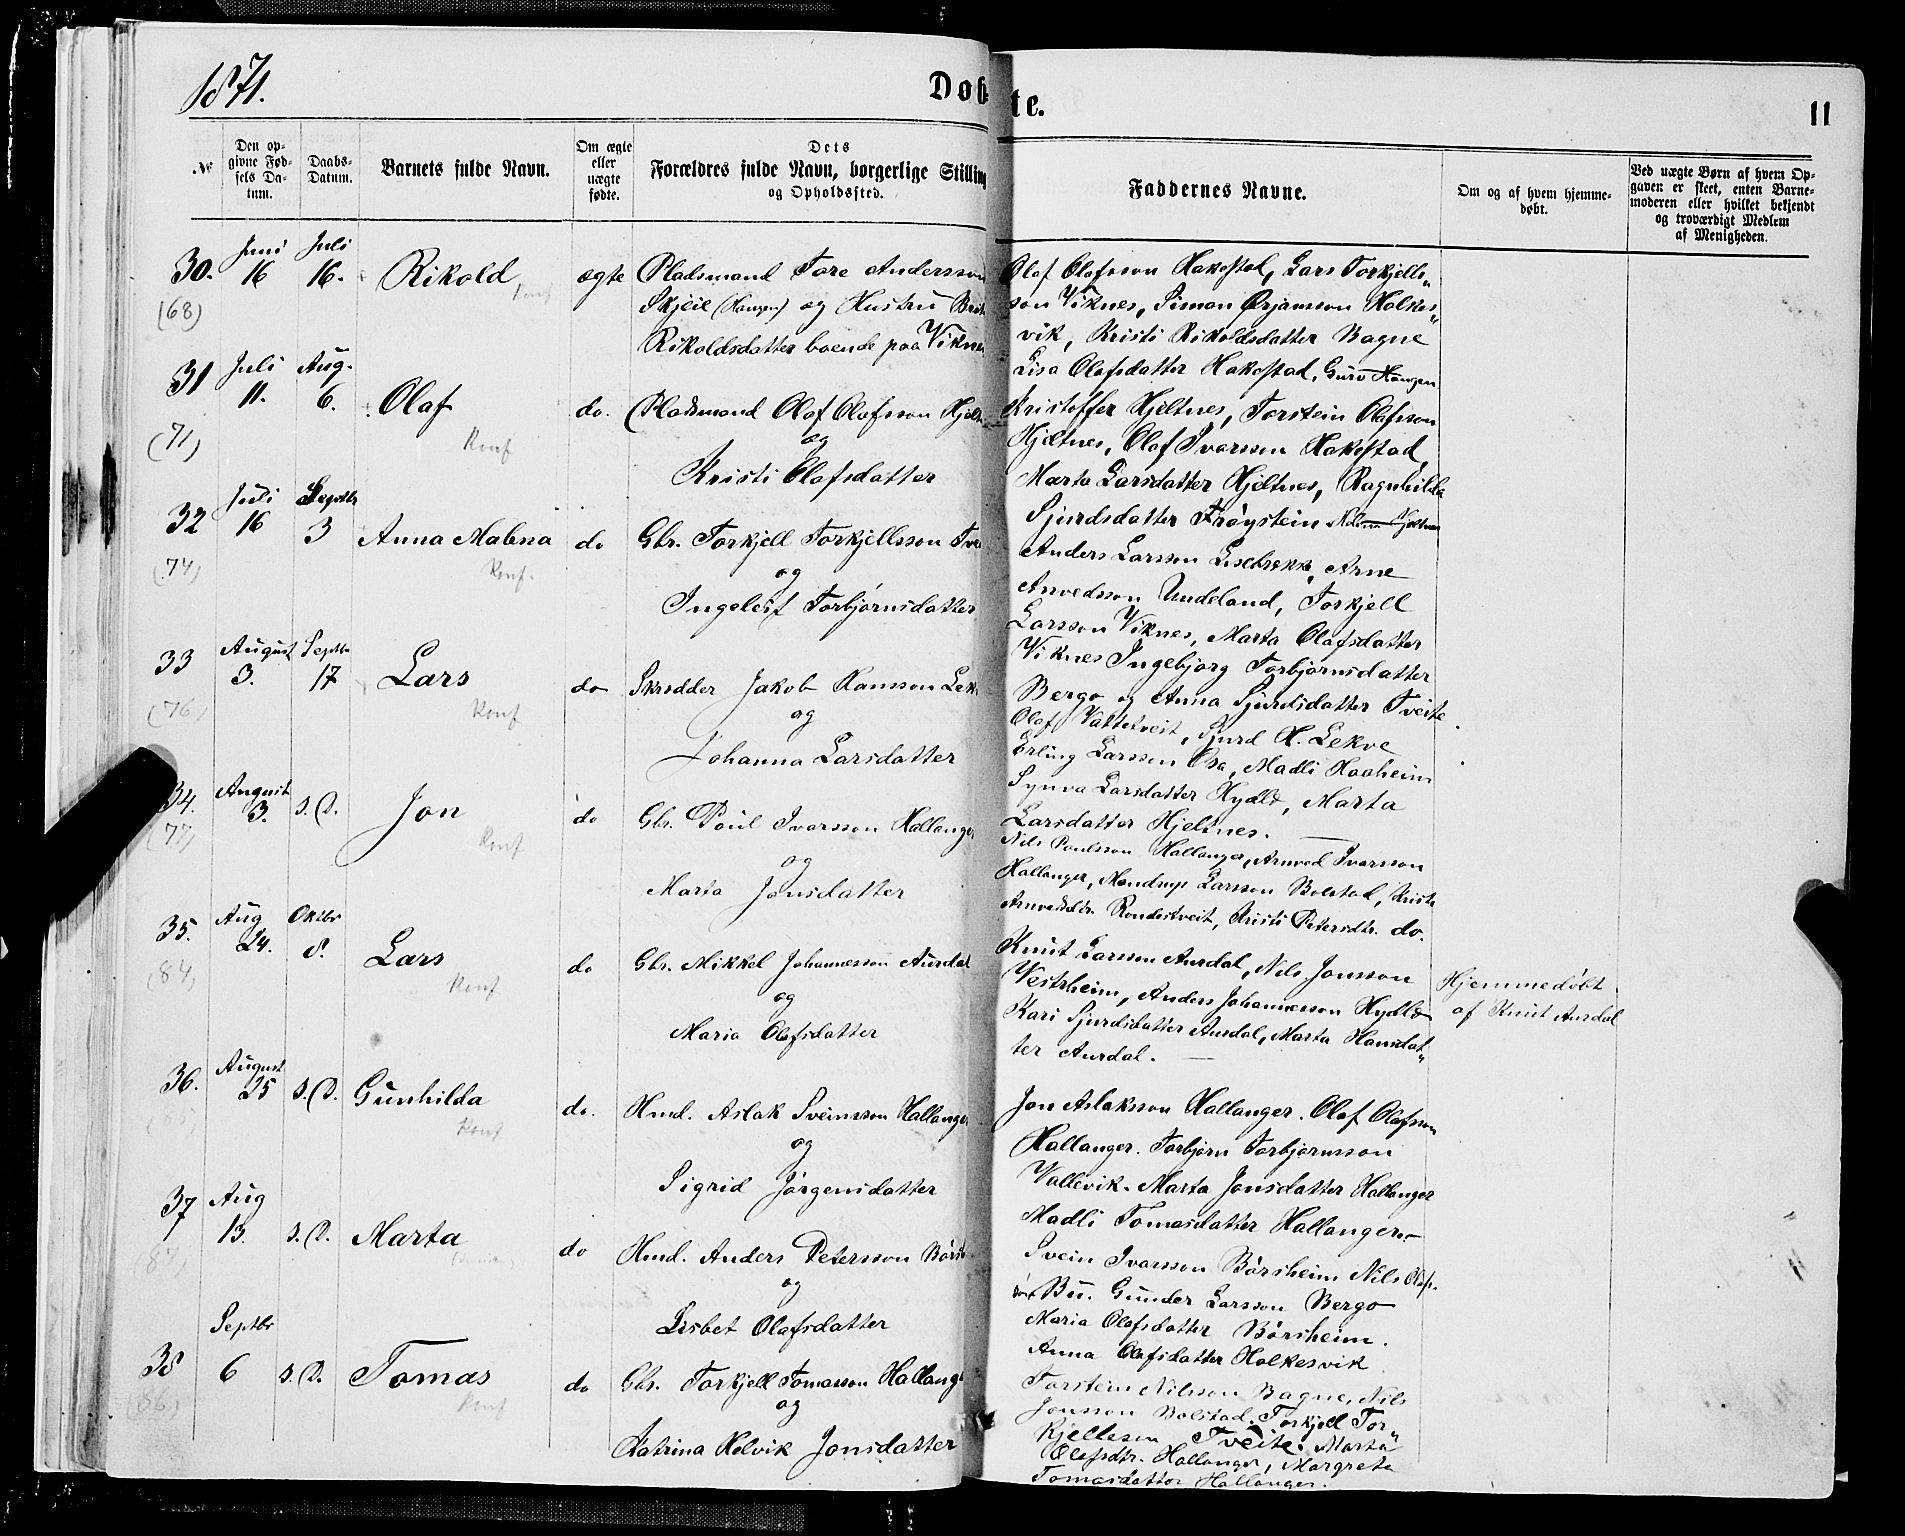 1871.
Døb
te.
11
№
Den op-
givne Fød-
sels Da-
tum.
Daabs-
Datum.
Barnets fulde Navn.
Om ægte
eller
uægte
fødte.
Dets
Forældres fulde Navn, borgerlige Stilling
og Opholdssted.
Faddernes Navne.
Om og af hvem hjemme-
døbt.
Ved uægte Børn af hvem Op-
gaven er skeet, enten Barne-
moderen eller hvilket bekjendt
og troværdigt Medlem
af Menigheden.
30. Juni 16 Juli 16. Rikold ægte Pladsmand Tore Andersson
(68) Konf
Skjeie (Haugen) og Hustru Brit
Rikoldsdatter boende paa Viknes
Olaf Olafsson Hakestad, Lars Torkjells„
son Viknes, Simon Ørjansson Holkes„
vik, Kristi Rikoldsdatter Bagne
Lisa Olafsdatter Hakestad, Guro Haugen
31 Juli 11. Aug. 6. Olaf do. Pladsmand Olaf Olafsson Hjelt
(71) Konf
og
Kristi Olafsdatter
Kristoffer Hjeltnes, Torstein Olafsson
Hjeltnes, Olaf Ivarsson Hakestad
Marta Larsdatter Hjeltnes, Ragnhilda
Sjurdsdatter Trøystein Hjeltnes
32 Juli 16 Septbr 3 Anna Malena do Gbr. Torkjell Torkjellsson Tve
(74) Konf.
og
Ingeleif Torbjørnsdatter
Anders Larsson Lisebrekke, Arne
Arvedsson Undeland, Torkjell
Larsson Viknes, Marta Olafsdatter
Viknes Ingebjorg Torbjørnsdatter
Bergo og Anna Sjurdsdatter Tveite
33 August 3. Septbr 17 Lars do Skredder Jakob Hansson Lek
(76) Konf
og
Johanna Larsdatter
Olaf Vattetveit, Sjurd H. Lekve
Erling Larsson Osa, Madli Haaheim
Synva Larsdatter Hydle, Marta
Larsdatter Hjeltnes.
34. August 3. s. D. Jon do Gbr. Poul Ivarsson Hallange
(77) Konf
og
Marta Jonsdatter
Nils Poulsson Hallanger, Arnved Ivarsson
Hallanger, Mandrup Larsson Bolstad, Kristi
Arnvedsdtr. Rondestveit, Kristi Petersdtr. do.
35. Aug 24. Oktbr 8. Lars do Gbr. Mikkel Johannesson Aurdal
(84) Konf
og
Maria Olafsdatter
Knut Larsson Aurdal, Nils Jonsson
Vestrheim, Anders Johannesson Hydle
Kari Sjurdsdatter Aurdal, Marta Hansdat„
ter Aurdal.
Hjemmedøbt
af Knut Aurdal
36. August 25 s. D. Gunhilda do. Hmd. Aslak Sveinsson Hallange
(85) Konf
og
Sigrid Jørgensdatter
Jon Aslaksson Hallanger. Olaf Olafsson
Hallanger. Torbjørn Torbjørnsson
Vallevik. Marta Jonsdatter Hallanger
Madli Tomasdatter Hallanger.
37 Aug 13. s. D. Marta do Hmd. Anders Petersson Børsh
(87)
og
Lisbet Olafsdatter
Svein Ivarsson Børsheim Nils Olafs-
son Bu. Gunder Larsson Bergo
Maria Olafsdatter Børsheim.
Anna Olafsdatter Holkesvik
38 Septbr 6 s. D. Tomas do Gbr. Torkjell Tomasson Hallang
(86) Konf
og
Katrina Helvik Jonsdatter
Torstein Nilsson Bagne, Nils
Jonsson Bolstad. Torkjell Tor„
kjellsson Tveite. Marta
Olafsdtr. Hallanger, Margreta
Tomasdatter Hallanger.